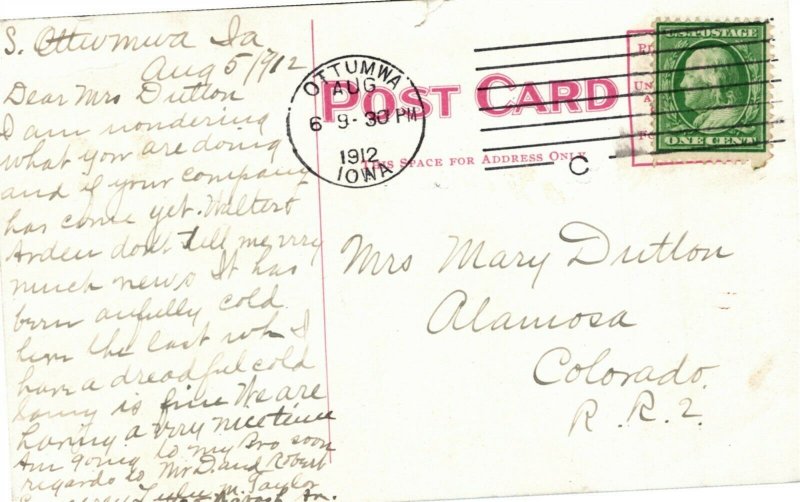 S. Ottumwa Ia
Aug 5/1912
Dear Mrs Dutton
I am wondering
what you are doing
and if your company
has come yet. Walter &
Arden don't tell me very
much news It has
been awfully cold
here the last wk I
have a dreadful cold
is fine We are
having a very nice time
Am going to my Bro soon
regards to Mr D. and Robert
Lulu M. Taylor
OTTUMWA
AUG
6 9-30 PM
1912
IOWA
POST CARD
THIS SPACE FOR ADDRESS ONLY
C
U.S. POSTAGE
ONE CENT
Mrs Mary Dutton
Alamosa
Colorado.
R. R. 2.